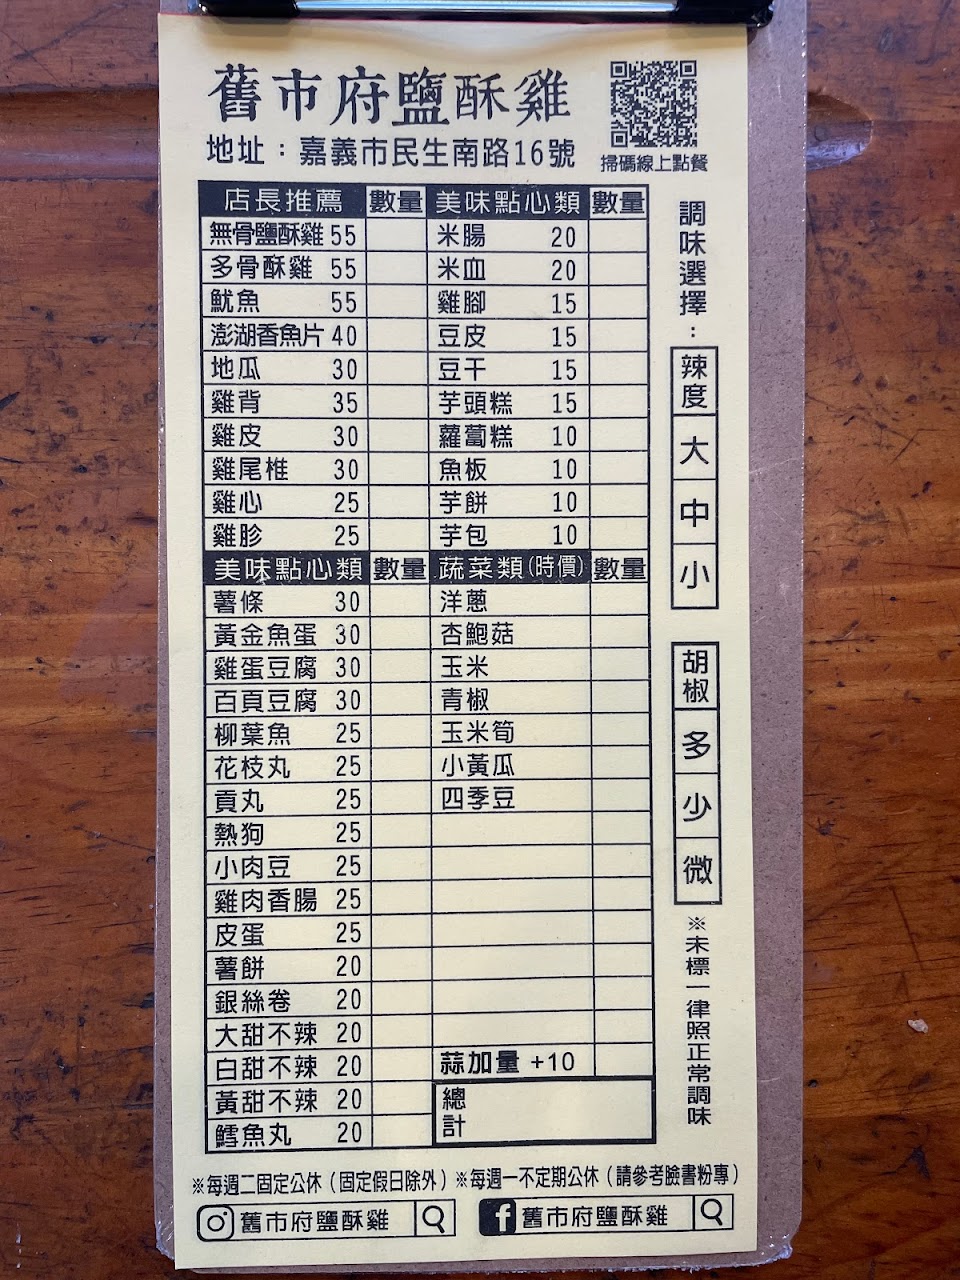 舊市府鹽酥雞
地址：嘉義市民生南路16號
掃碼線上點餐
店長推薦 數量 美味點心類 數量
無骨鹽酥雞 55 米腸 20
多骨酥雞 55 米血 20
魷魚 55 雞腳 15
澎湖香魚片 40 豆皮 15
地瓜 30 豆干 15
雞背 35 芋頭糕 15
雞皮 30 蘿蔔糕 10
雞尾椎 30 魚板 10
雞心 25 芋餅 10
雞胗 25 芋包 10
美味點心類 數量 蔬菜類(時價) 數量
薯條 30 洋蔥
黃金魚蛋 30 杏鮑菇
雞蛋豆腐 30 玉米
百頁豆腐 30 青椒
柳葉魚 25 玉米筍
花枝丸 25 小黃瓜
貢丸 25 四季豆
熱狗 25
小肉豆 25
雞肉香腸 25
皮蛋 25
薯餅 20
銀絲卷 20
大甜不辣 20
白甜不辣 20 蒜加量 +10
黃甜不辣 20 總計
鱈魚丸 20
調味選擇：
辣度 大 中 小
胡椒 多 少 微
※未標一律照正常調味
※每週二固定公休（固定假日除外）※每週一不定期公休（請參考臉書粉專）
舊市府鹽酥雞 舊市府鹽酥雞